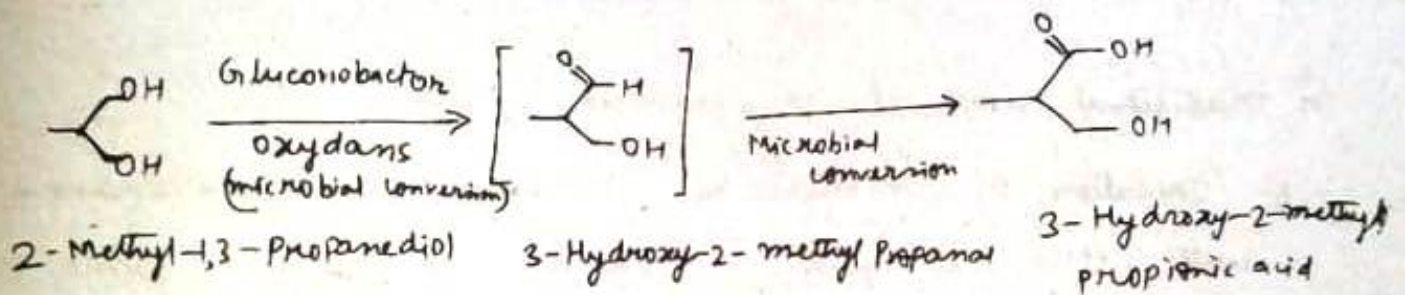 OH
OH
Gluconobacter
oxydans
(microbial conversion)
O
H
OH
Microbial
conversion
O
OH
OH
2-Methyl-1,3-Propanediol
3-Hydroxy-2-methyl Propanal
3-Hydroxy-2-methyl
propionic acid